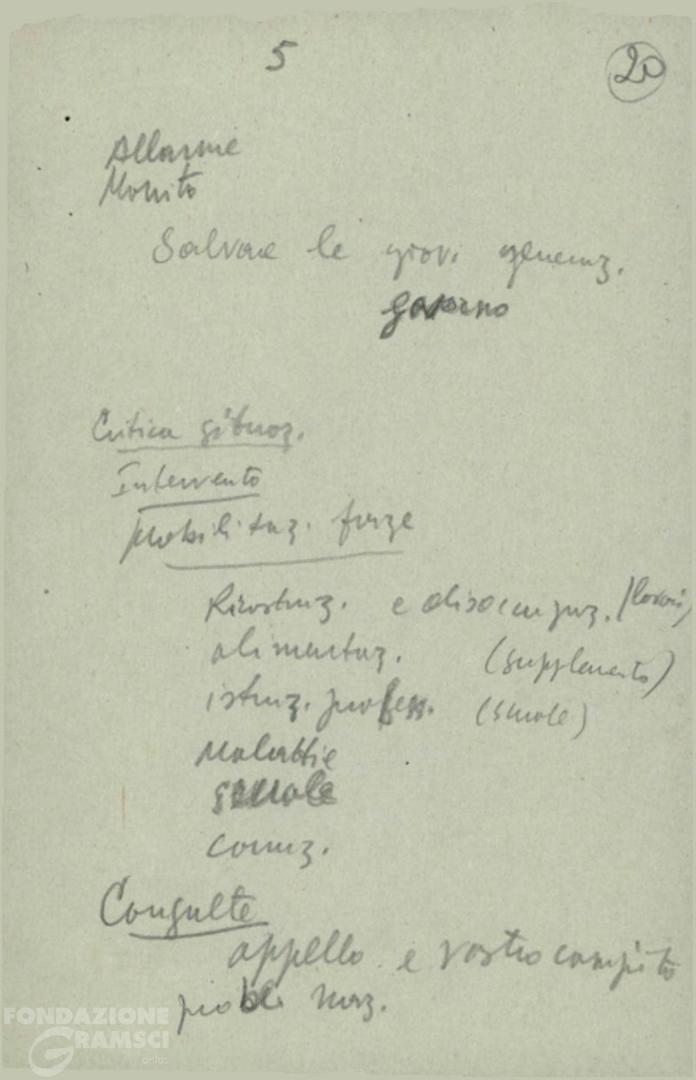 5
20
Allarme
Monito
Salvare le giov. generaz.
governo
Critica situaz.
Intervento
Mobilitaz. forze
Ricostruz. e disoccupaz. (lavori)
alimentaz. (supplemento)
istruz. profess. (scuole)
Malattie
scuole
corruz.
Consulte
appello e vostro compito
probl. naz.
FONDAZIONE
GRAMSCI
onlus